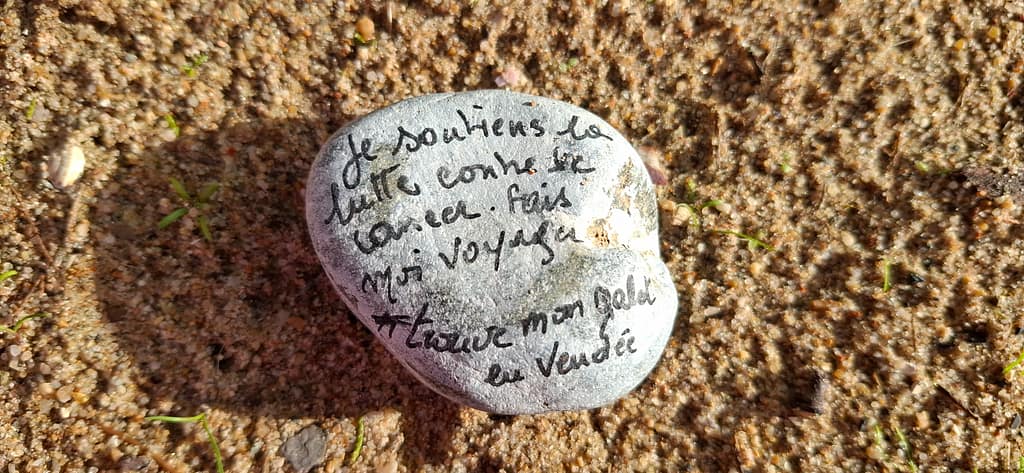 Je soutiens la
lutte contre le
cancer. fais
moi voyager
#trouve mon galet
en Vendée